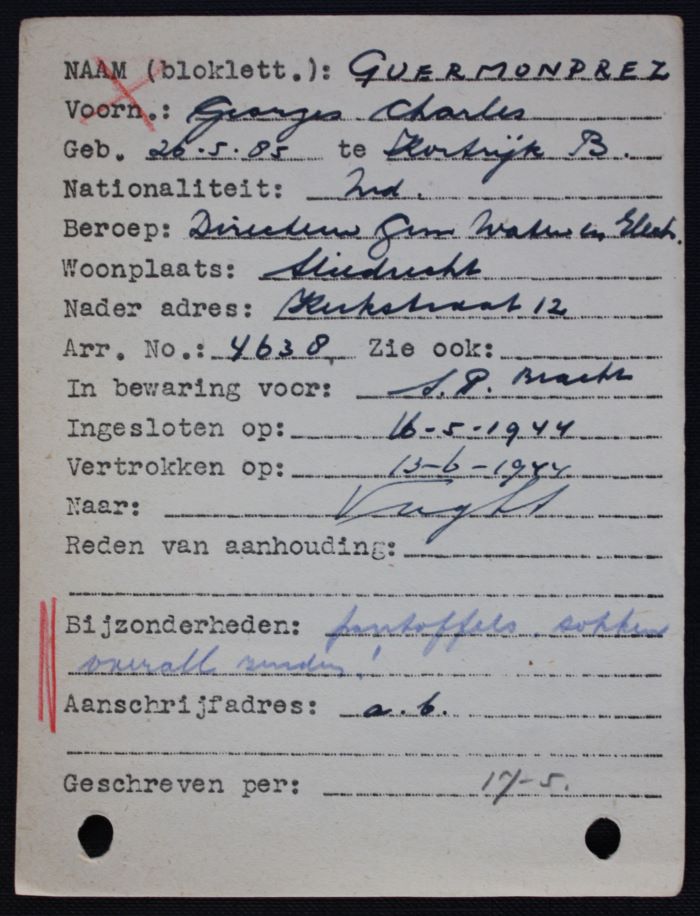 NAAM (blokLett.): GUERMONPREZ
Voorn.: Georges Charles
Geb. 26-5-85 te Kortrijk B.
Nationaliteit: Ned.
Beroep: Directeur Gem Water en Electr.
Woonplaats: Sliedrecht
Nader adres: Kerkstraat 12
Arr. No.: 4638 Zie ook:
In bewaring voor: S.P. Bracht
Ingesloten op: 16-5-1944
Vertrokken op: 13-6-1944
Naar: Vught
Reden van aanhouding:
Bijzonderheden: pantoffels. sokken
overall zenden!
Aanschrijfadres: a.b.
Geschreven per: 17-5.